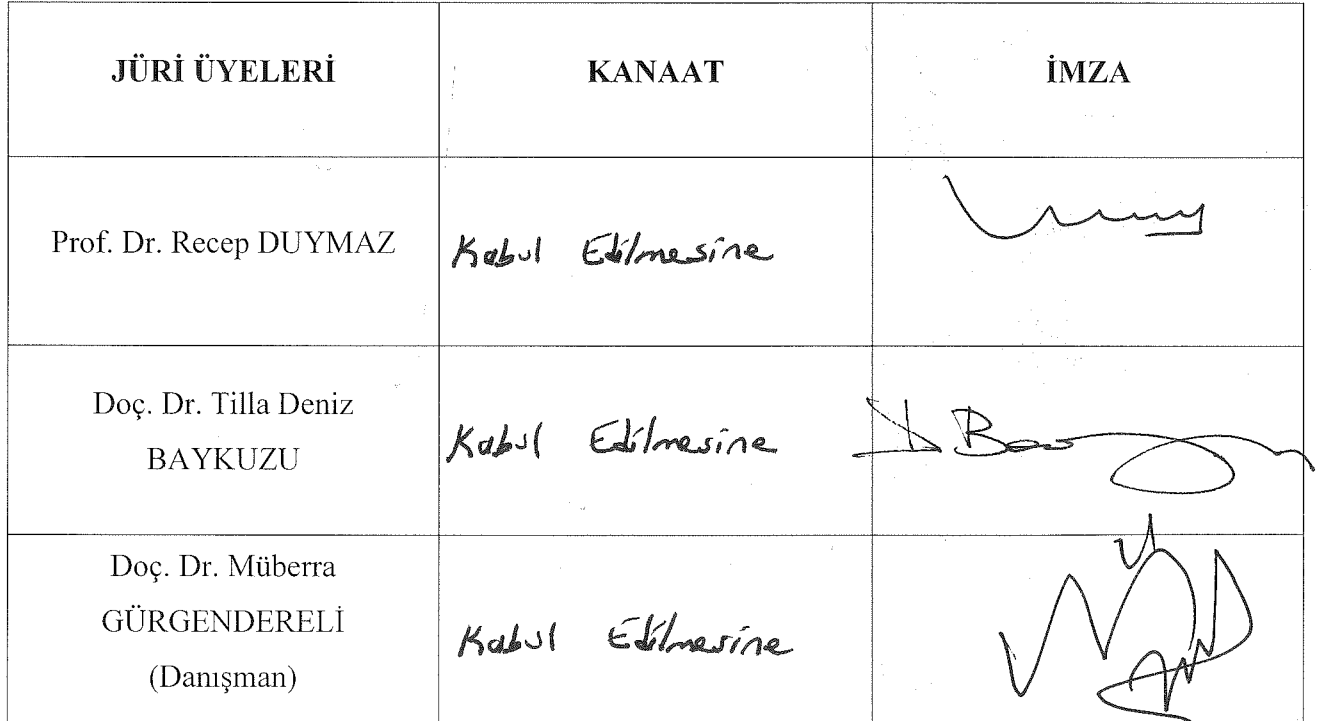 JÜRİ ÜYELERİ KANAAT İMZA
Prof. Dr. Recep DUYMAZ Kabul Edilmesine
Doç. Dr. Tilla Deniz
BAYKUZU
Kabul Edilmesine
Doç. Dr. Müberra
GÜRGENDERELİ
(Danışman)
Kabul Edilmesine